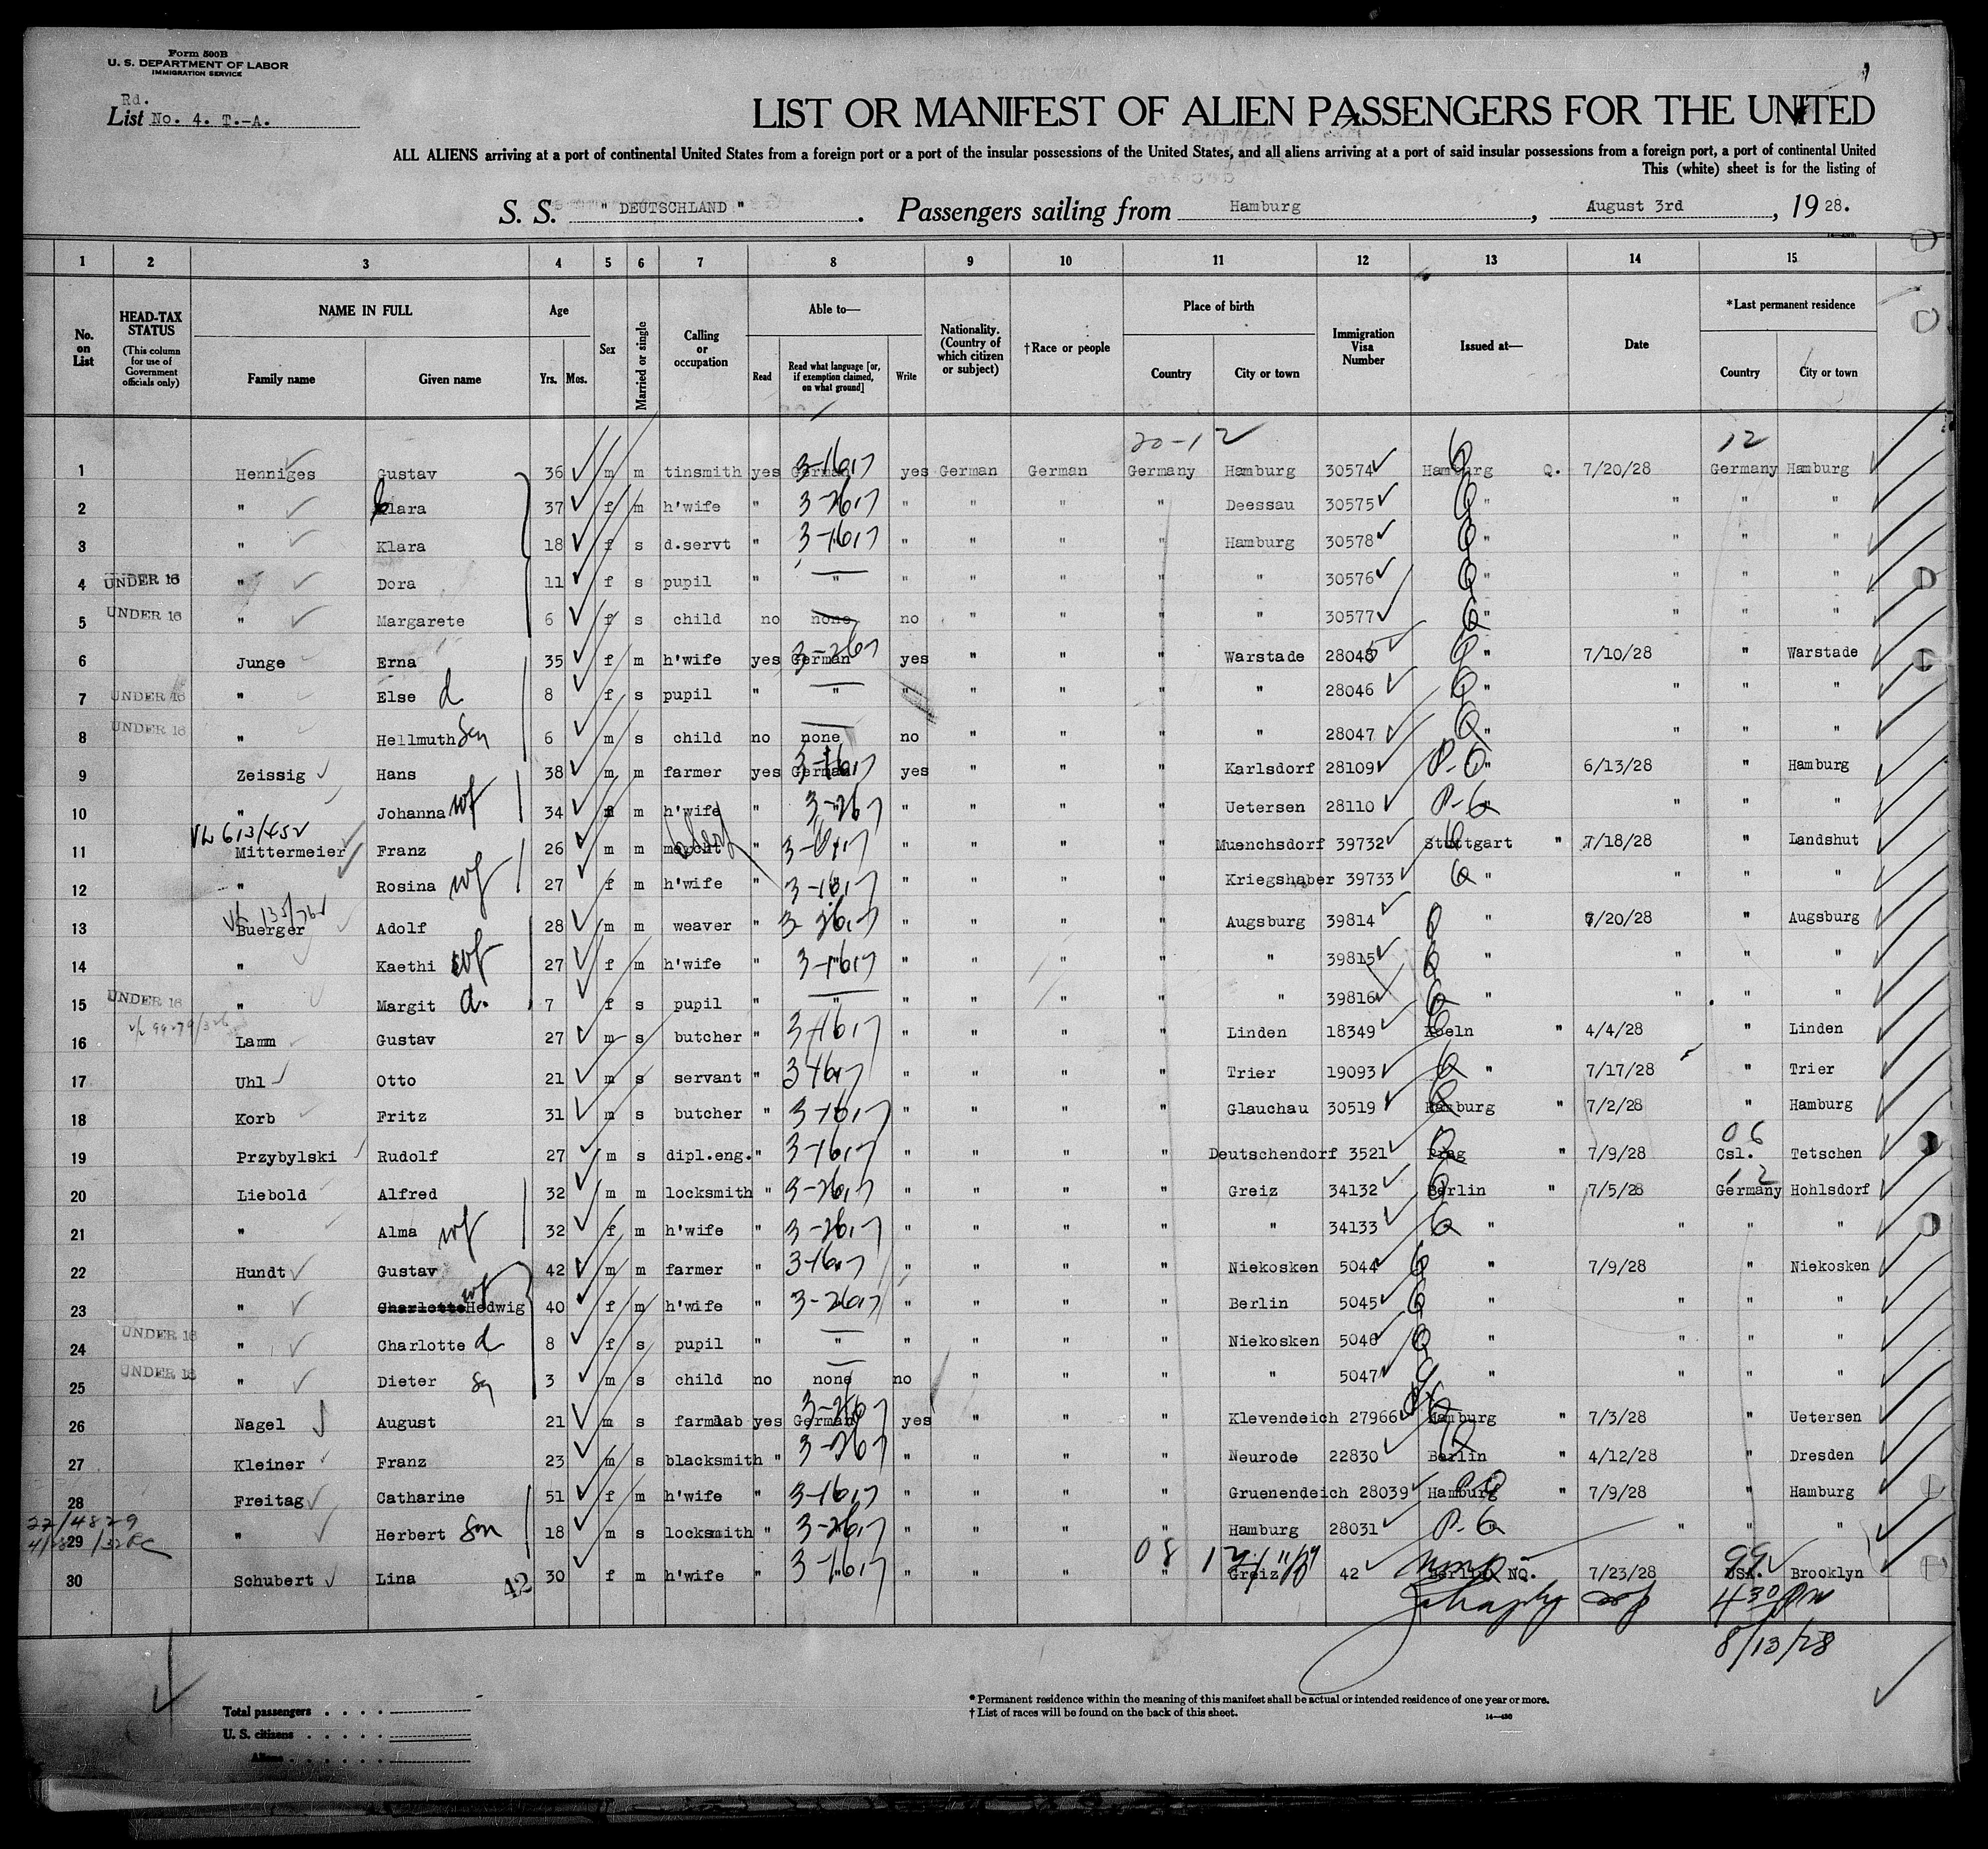 Form 500B
U. S. DEPARTMENT OF LABOR
IMMIGRATION SERVICE
Rd.
List No. 4. T.-A.
LIST OR MANIFEST OF ALIEN PASSENGERS FOR THE UNITED
ALL ALIENS arriving at a port of continental United States from a foreign port or a port of the insular possessions of the United States, and all aliens arriving at a port of said insular possessions from a foreign port, a port of continental United
This (white) sheet is for the listing of
S. S. " DEUTSCHLAND " . Passengers sailing from Hamburg , August 3rd , 19 28.
1 2 3 4 5 6 7 8 9 10 11 12 13 14 15
No. on List
HEAD-TAX STATUS (This column for use of Government officials only)
NAME IN FULL
Family name Given name
Age
Yrs. Mos.
Sex
Married or single
Calling or occupation
Able to—
Read
Read what language [or, if exemption claimed, on what ground]
Write
Nationality. (Country of which citizen or subject)
†Race or people
Place of birth
Country City or town
Immigration Visa Number
Issued at—
Date
*Last permanent residence
Country City or town
20-12 12
1 Henniges Gustav 36 m m tinsmith yes German yes German German Germany Hamburg 30574 Hamburg Q. 7/20/28 Germany Hamburg
2 " Klara 37 f m h'wife " " " " " Deessau 30575 " " " "
3 " Klara 18 f s d.servt " " " " " Hamburg 30578 " " " "
4 UNDER 16 " Dora 11 f s pupil " " " " " " " 30576 " " " "
5 UNDER 16 " Margarete 6 f s child no none no " " " " 30577 " " " "
6 Junge Erna 35 f m h'wife yes German yes " " " Warstade 28045 " 7/10/28 " Warstade
7 UNDER 16 " Else d 8 f s pupil " " " " " " " 28046 " " " "
8 UNDER 16 " Hellmuth son 6 m s child no none no " " " " 28047 " " " "
9 Zeissig Hans 38 m m farmer yes German yes " " " Karlsdorf 28109 P-Q " 6/13/28 " Hamburg
10 " Johanna wf 34 f m h'wife " " " " " Uetersen 28110 P-Q " " " "
11 Mittermeier Franz 26 m m " " " " " Muenchsdorf 39732 Stuttgart " 7/18/28 " Landshut
12 " Rosina wf 27 f m h'wife " " " " " Kriegshaber 39733 " " " "
13 Buerger Adolf 28 m m weaver " " " " " Augsburg 39814 " 7/20/28 " Augsburg
14 " Kaethi wf 27 f m h'wife " " " " " " 39815 " " " "
15 UNDER 16 " Margit d. 7 f s pupil " " " " " " " 39816 " " " "
16 Lamm Gustav 27 m s butcher " " " " " Linden 18349 Koeln " 4/4/28 " Linden
17 Uhl Otto 21 m s servant " " " " " Trier 19093 " 7/17/28 " Trier
18 Korb Fritz 31 m s butcher " " " " " Glauchau 30519 Hamburg " 7/2/28 " Hamburg
06
19 Przybylski Rudolf 27 m s dipl.eng. " " " " " Deutschendorf 3521 Prag " 7/9/28 Csl. Tetschen
12
20 Liebold Alfred 32 m m locksmith " " " " " Greiz 34132 Berlin " 7/5/28 Germany Hohlsdorf
21 " Alma wf 32 f m h'wife " " " " " " 34133 " " " "
22 Hundt Gustav 42 m m farmer " " " " " Niekosken 5044 " 7/9/28 " Niekosken
23 " Charlotte Hedwig wf 40 f m h'wife " " " " " Berlin 5045 " " " "
24 UNDER 16 " Charlotte d 8 f s pupil " " " " " " Niekosken 5046 " " " "
25 UNDER 16 " Dieter 3 m s child no none no " " " " 5047 " " " "
26 Nagel August 21 m s farmlab yes German yes " " " Klevendeich 27966 Hamburg " 7/3/28 " Uetersen
27 Kleiner Franz 23 m s blacksmith " " " " " Neurode 22830 Berlin " 4/12/28 " Dresden
28 Freitag Catharine 51 f m h'wife " " " " " Gruenendeich 28039 Hamburg " 7/9/28 " Hamburg
29 " Herbert Son 18 m s locksmith " " " " " Hamburg 28031 P-Q " " "
08 99
30 Schubert Lina 42 30 f m h'wife " " " " " Greiz 42 Berlin NQ. 7/23/28 USA. Brooklyn
430 PM
8/13/28
Total passengers . . . .
U. S. citizens . . . . .
Aliens . . . . . .
* Permanent residence within the meaning of this manifest shall be actual or intended residence of one year or more.
† List of races will be found on the back of this sheet.
14—430